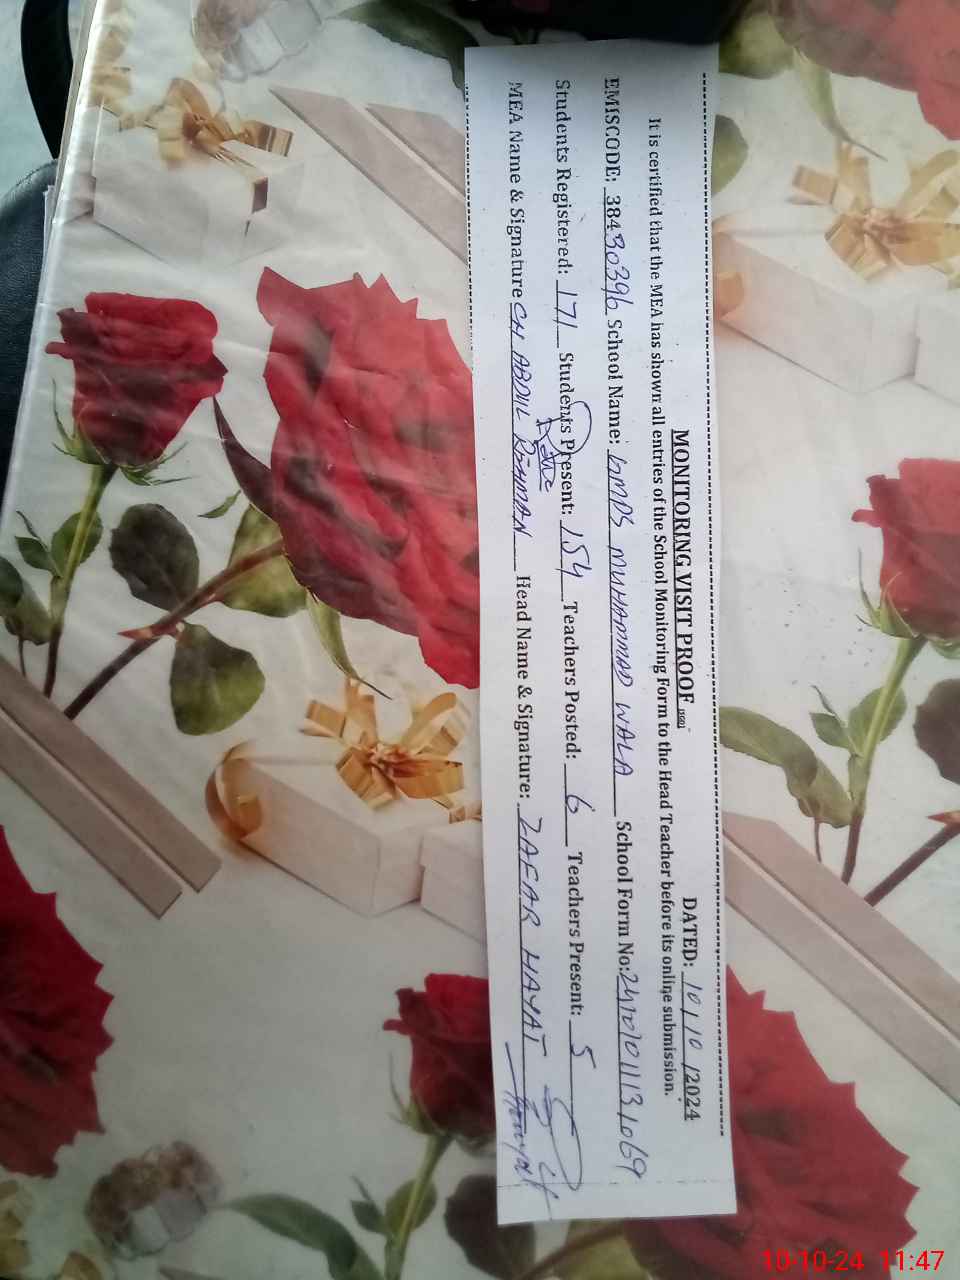 MONITORING VISIT PROOF
DATED: 10/10/2024
It is certified that the MEA has shown all entries of the School Monitoring Form to the Head Teacher before its online submission.
EMISCODE: 38430396 School Name: GMPS MUHAMMAD WALA School Form No:
Students Registered: 171 Students Present: 154 Teachers Posted: 6 Teachers Present: 5
MEA Name & Signature CH ABDUL REHMAN Head Name & Signature: ZAFAR HAYAT
10-10-24 11:47